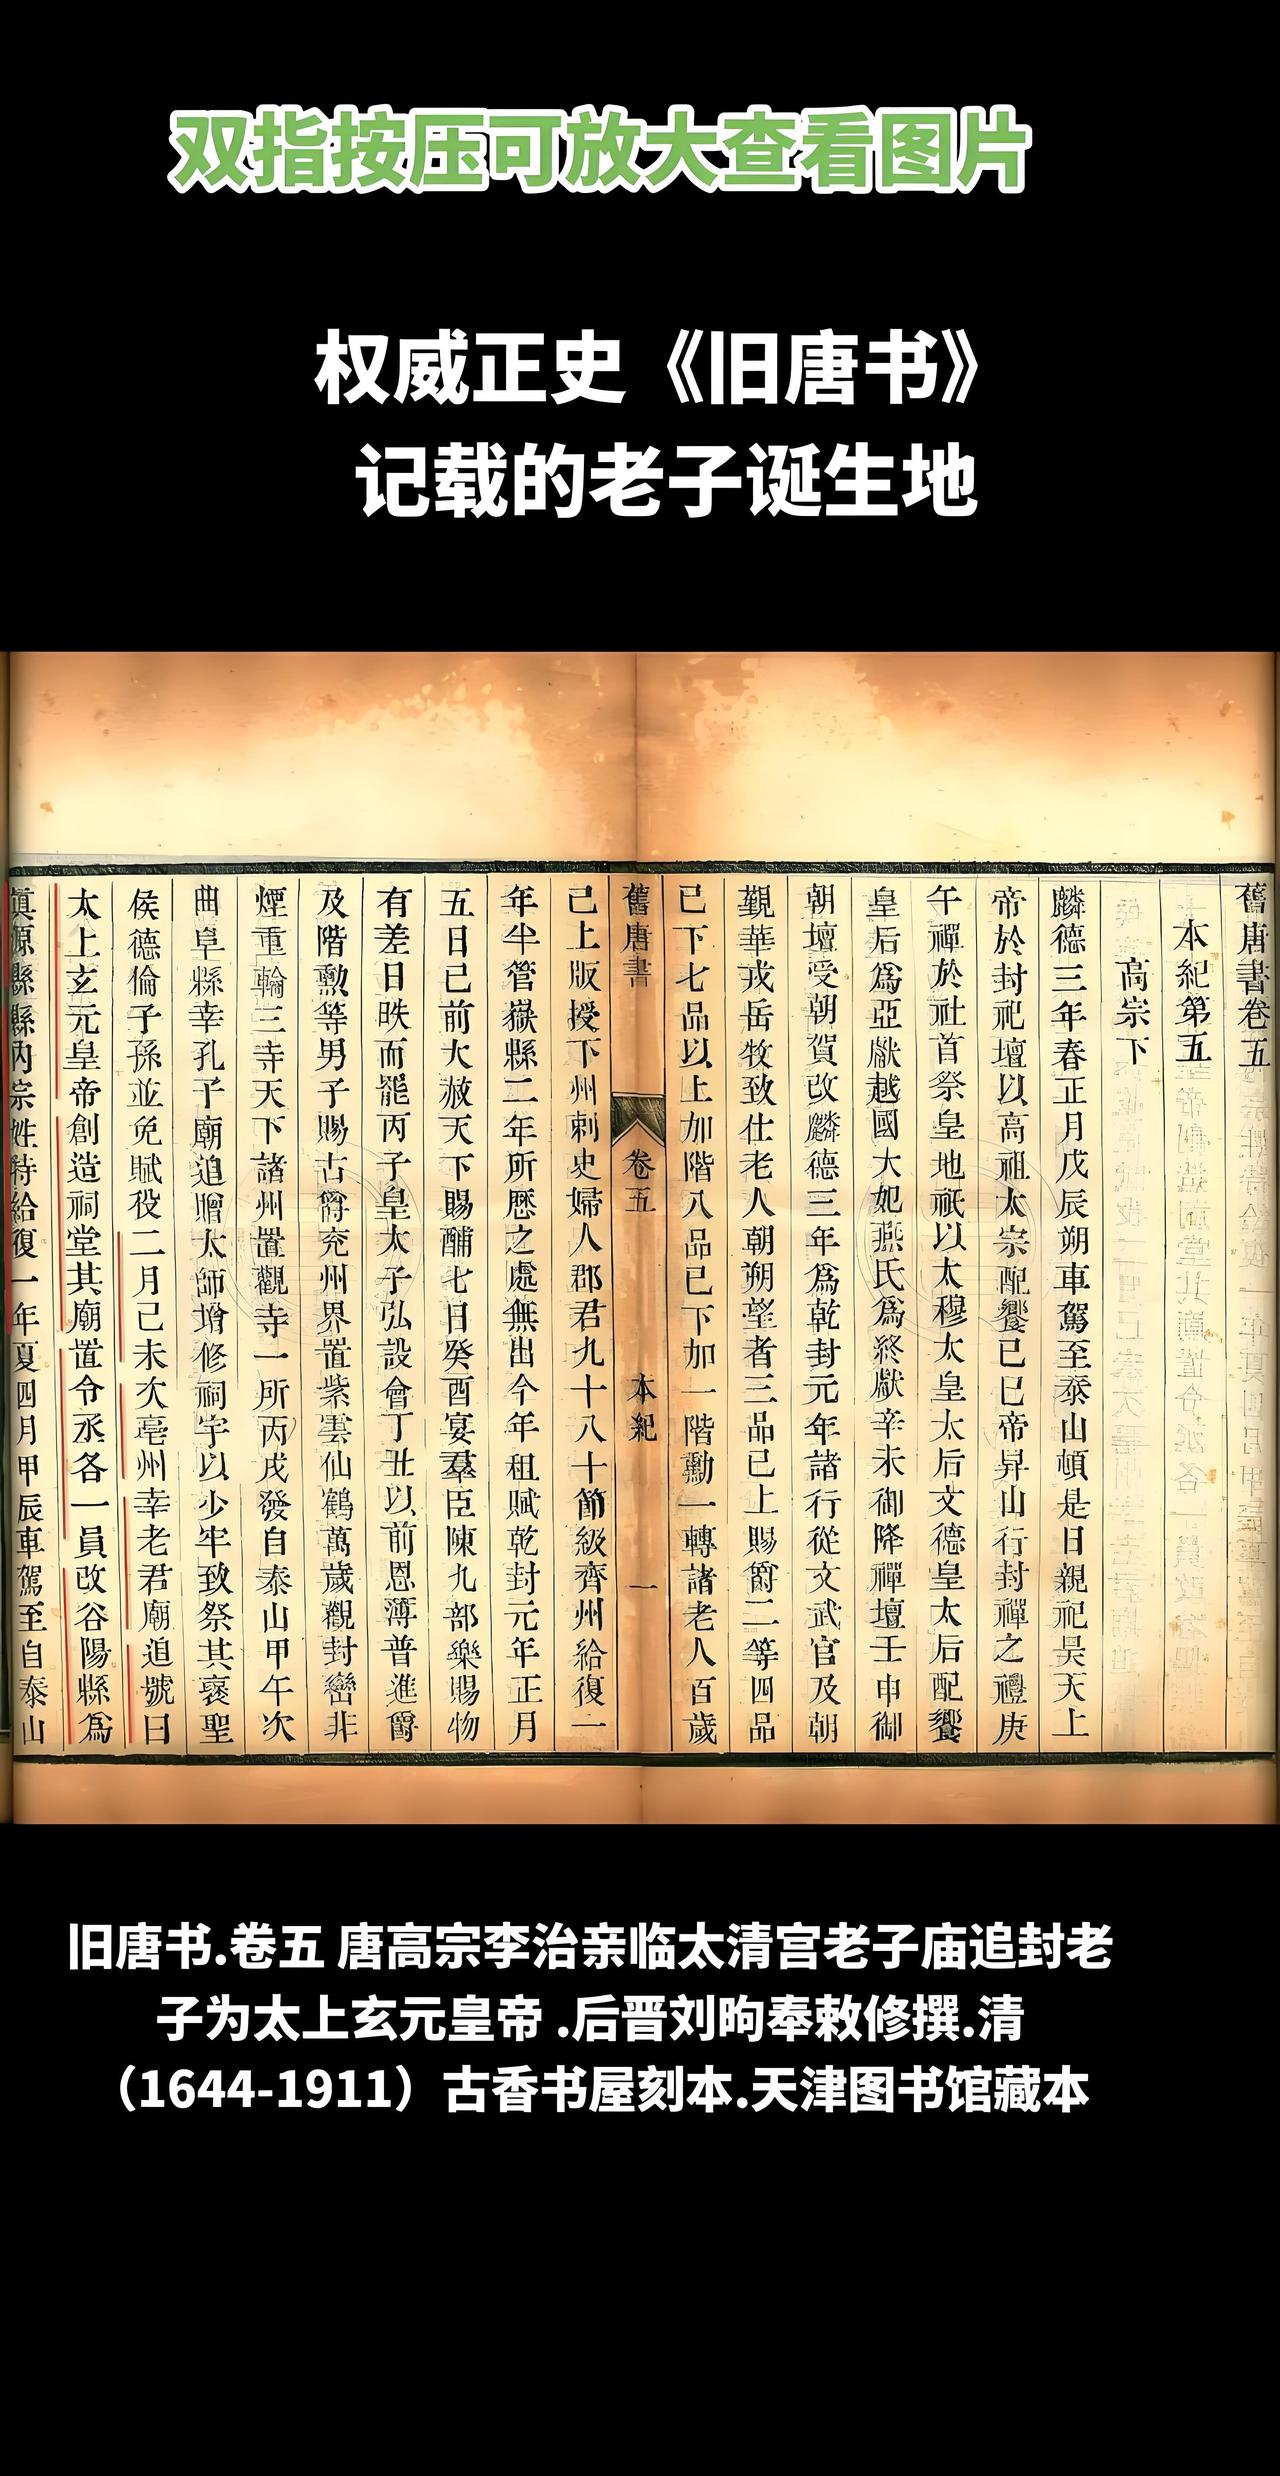 双指按压可放大查看图片
权威正史《旧唐书》
记载的老子诞生地
舊唐書卷五
本紀第五
高宗下
麟德三年春正月戊辰朔車駕至泰山頓是日親祀昊天上
帝於封祀壇以高祖太宗配饗己巳帝昇山行封禪之禮庚
午禪於社首祭皇地祇以太穆太皇太后文德皇太后配饗
皇后爲亞獻越國大妃燕氏爲終獻辛未御降禪壇壬申御
朝壇受朝賀改麟德三年爲乾封元年諸行從文武官及朝
覲華戎岳牧致仕老人朝朔望者三品已上賜爵二等四品
已下七品以上加階八品已下加一階勳一轉諸老人百歲
舊唐書 卷五 本紀 一
已上版授下州刺史婦人郡君九十八十節級齊州給復二
年半管嶽縣二年所歷之處無出今年租賦乾封元年正月
五日已前大赦天下賜酺七日癸酉宴羣臣陳九部樂賜物
有差日昳而罷丙子皇太子弘設會丁丑以前恩薄普進爵
及階勳等男子賜古爵兖州界置紫雲仙鶴萬歲觀封巒非
煙重輪三寺天下諸州置觀寺一所丙戌發自泰山甲午次
曲阜縣幸孔子廟追贈太師增修祠宇以少牢致祭其襃聖
侯德倫子孫並免賦役二月己未次亳州幸老君廟追號曰
太上玄元皇帝創造祠堂其廟置令丞各一員改谷陽縣爲
眞源縣縣內宗姓特給復一年夏四月甲辰車駕至自泰山
旧唐书.卷五 唐高宗李治亲临太清宫老子庙追封老
子为太上玄元皇帝 .后晋刘昫奉敕修撰.清
（1644-1911）古香书屋刻本.天津图书馆藏本